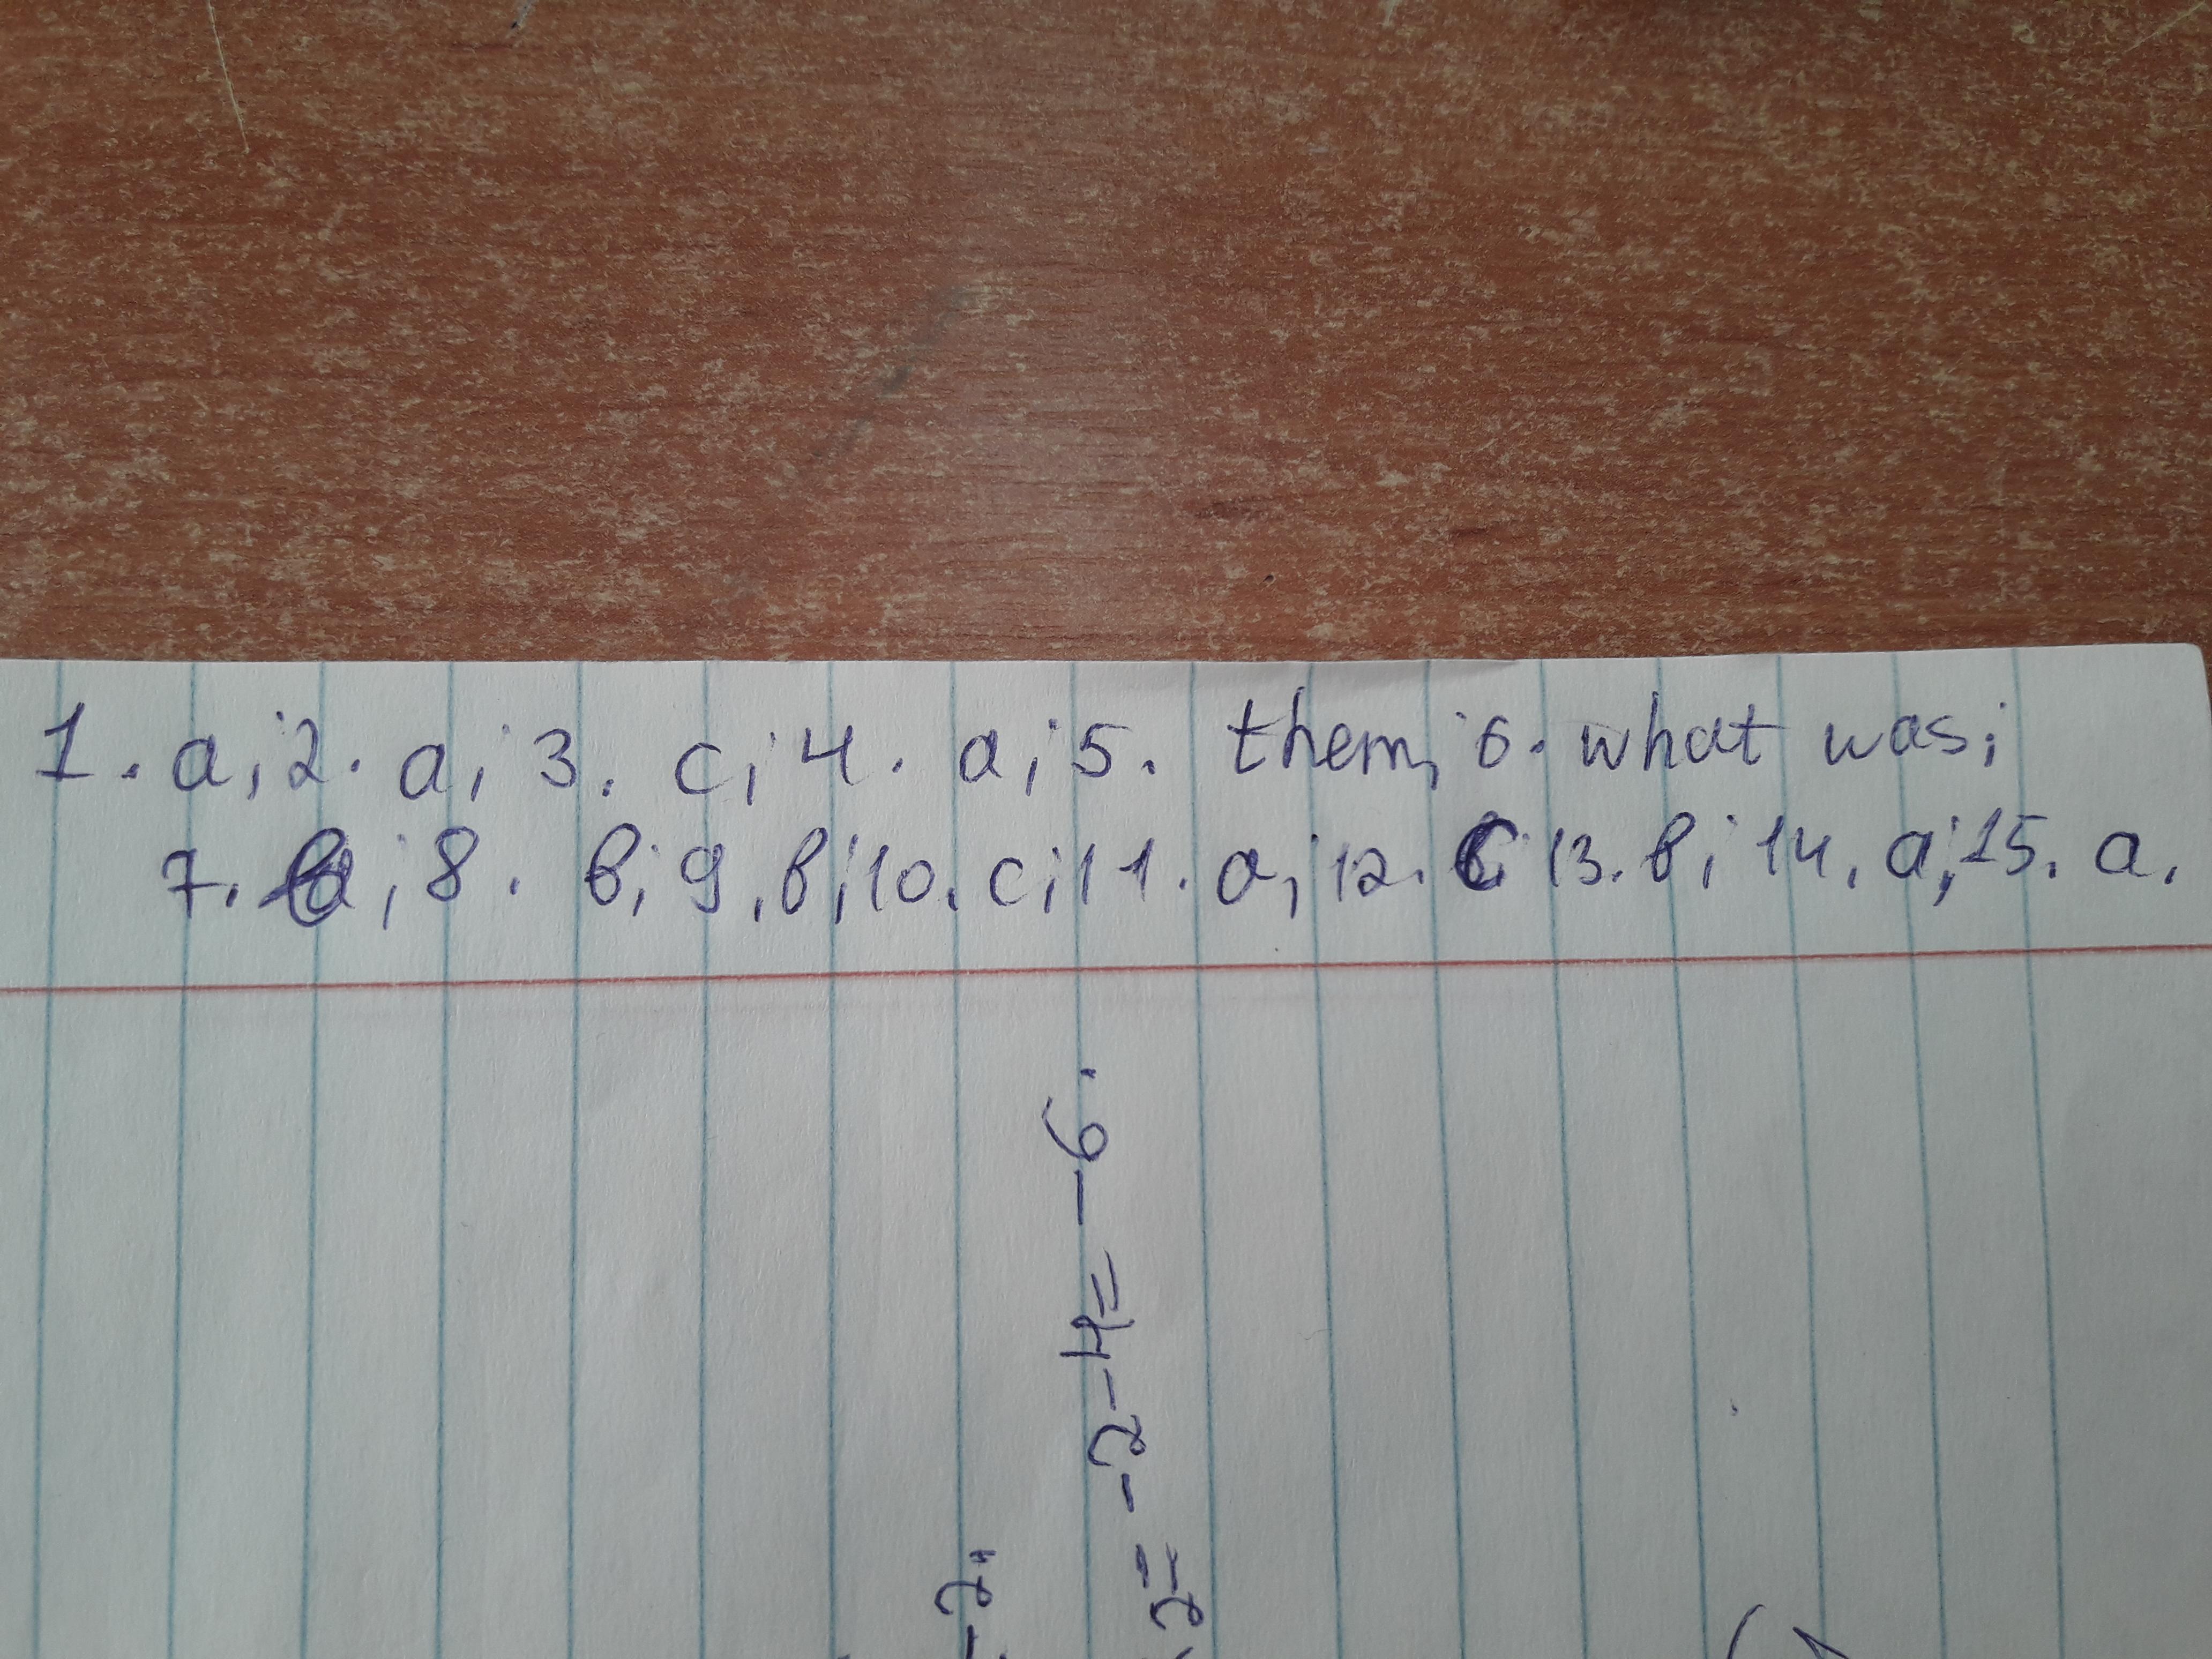 1. a; 2. a; 3. c; 4. a; 5. them; 6. what was;
7. a; 8. b; 9. b; 10. c; 11. a; 12. c; 13. b; 14. a; 15. a.
-2-4= -6.